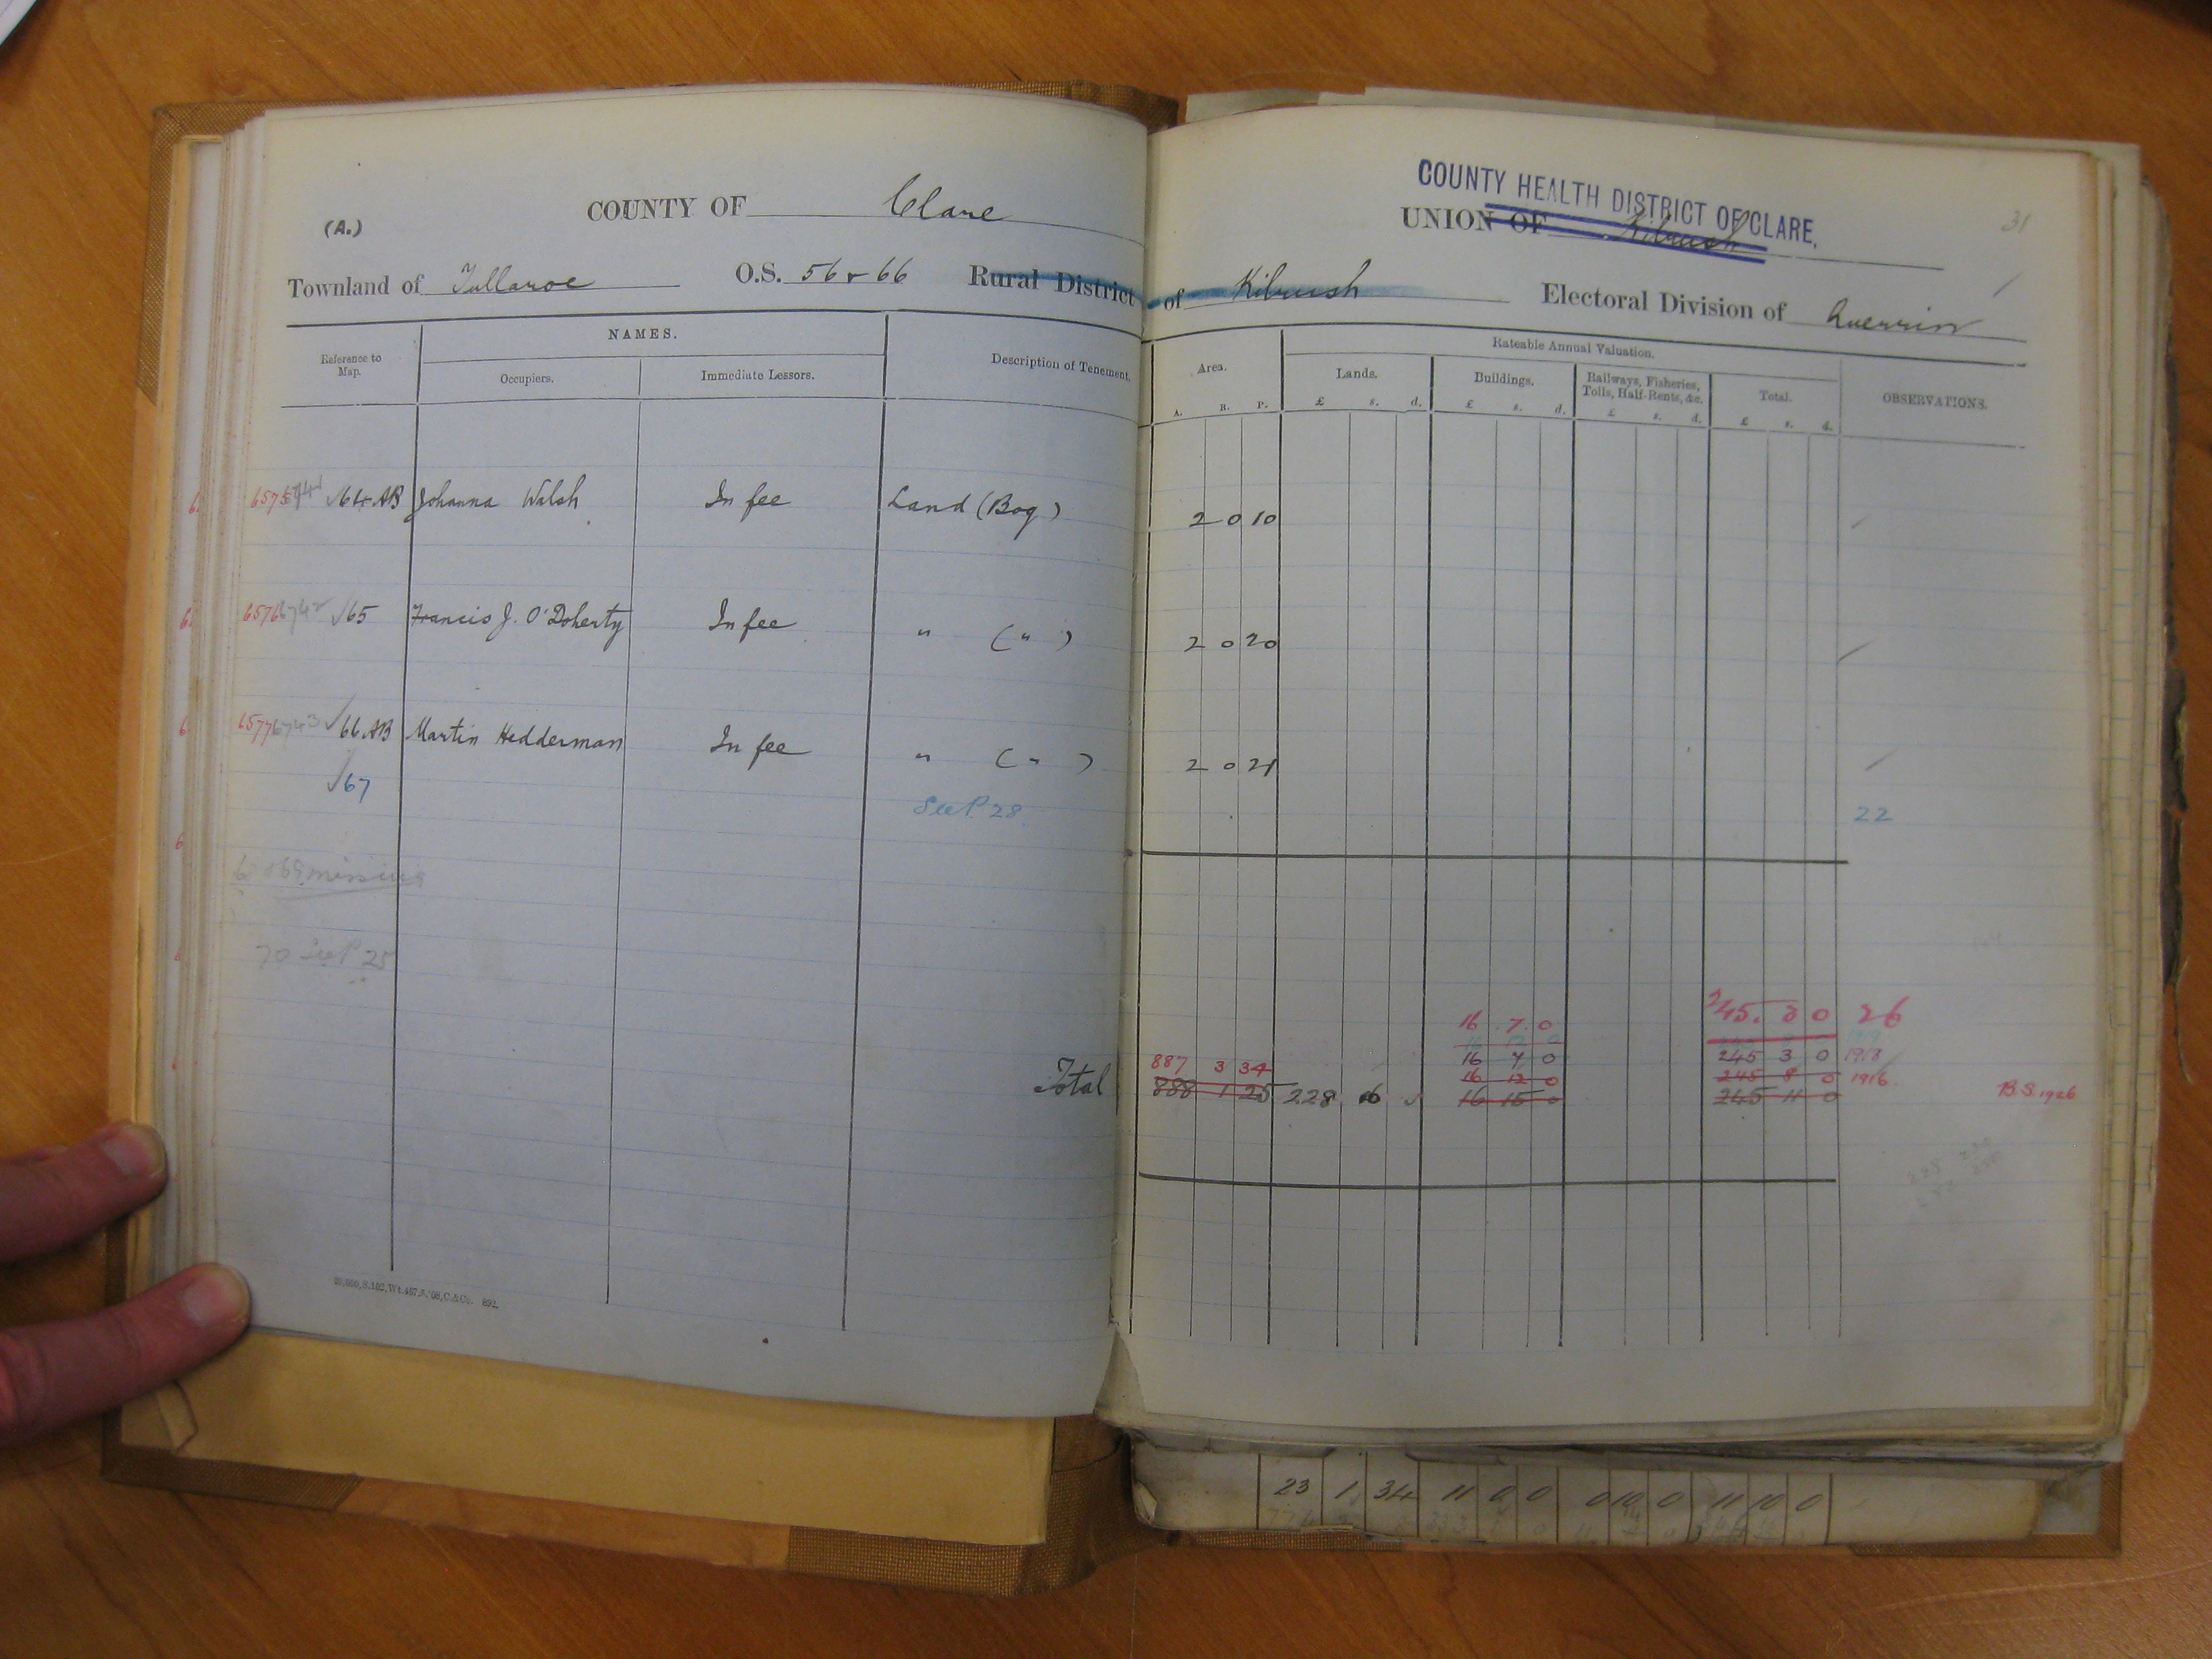 COUNTY OF Clare
(A.)
Townland of Tullaroe O.S. 56 & 66 Rural District
NAMES.
Reference to Map.
Occupiers.
Immediate Lessors.
Description of Tenement.
64 AB Johanna Walsh In fee Land (Bog)
6576 65 Francis J. O'Doherty In fee " ( " )
6577 66 AB Martin Hedderman In fee " ( " )
67
See P. 28
missing
70 See P 25
Total
COUNTY HEALTH DISTRICT OF CLARE.
UNION OF Kilrush
31
of Kilrush Electoral Division of Querrin
Rateable Annual Valuation.
Area.
Lands.
Buildings.
Railways, Fisheries, Tolls, Half-Rents, &c.
Total.
OBSERVATIONS.
A. R. P. £ s. d. £ s. d. £ s. d. £ s. d.
2 0 10
2 0 20
2 0 21
22
16 7 0 245. 3 0 26
16 12 0 1919
887 3 34 16 7 0 245 3 0 1918
16 12 0 245 8 0 1916
888 1 25 228 16 16 15 0 245 11 0
B.S. 1926
23 1 34 11 0 0 0 10 0 11 10 0